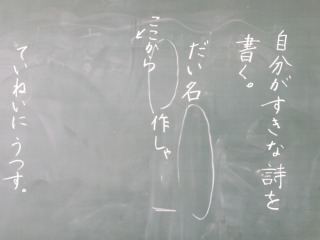 自分がすきな詩を
書く。
だい名
ここから
作しゃ
ていねいにうつす。